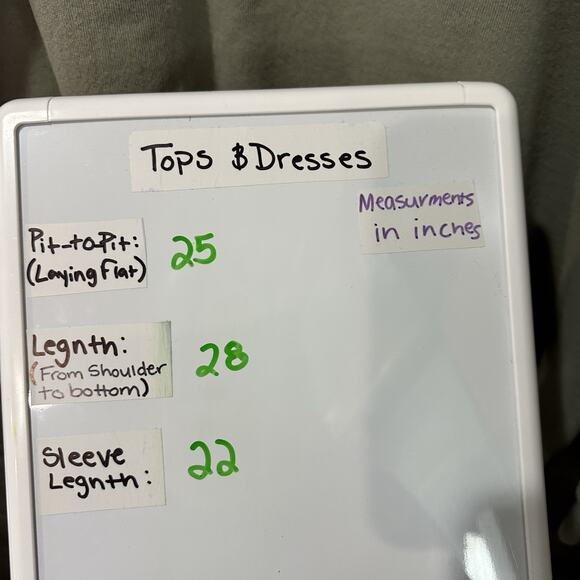 Tops & Dresses
Measurments
in inches
Pit-to-Pit: 25
(Laying Flat)
Legnth: 28
(From Shoulder
to bottom)
Sleeve 22
Legnth: